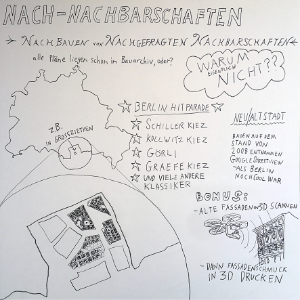 NACH-NACHBARSCHAFTEN
NACHBAUEN VON NACHGEFRAGTEN NACHBARSCHAFTEN
alle Pläne liegen schon im Bauarchiv, oder?
WARUM
EIGENTLICH
NICHT??
Z.B.
IN GROSSZIETHEN
BERLIN HITPARADE
SCHILLER KIEZ
KOLLWITZ KIEZ
GÖRLI
GRAEFE KIEZ
UND VIELE ANDERE
KLASSIKER
NEU/ALTSTADT
BAUEN AUF DEM
STAND VON
2008 ENTNOMMEN
GOOGLE STREETVIEW
ALS BERLIN
NOCH COOL WAR
BONUS:
- ALTE FASSADEN 3D SCANNEN
- DANN FASSADENSCHMUCK
IN 3D DRUCKEN